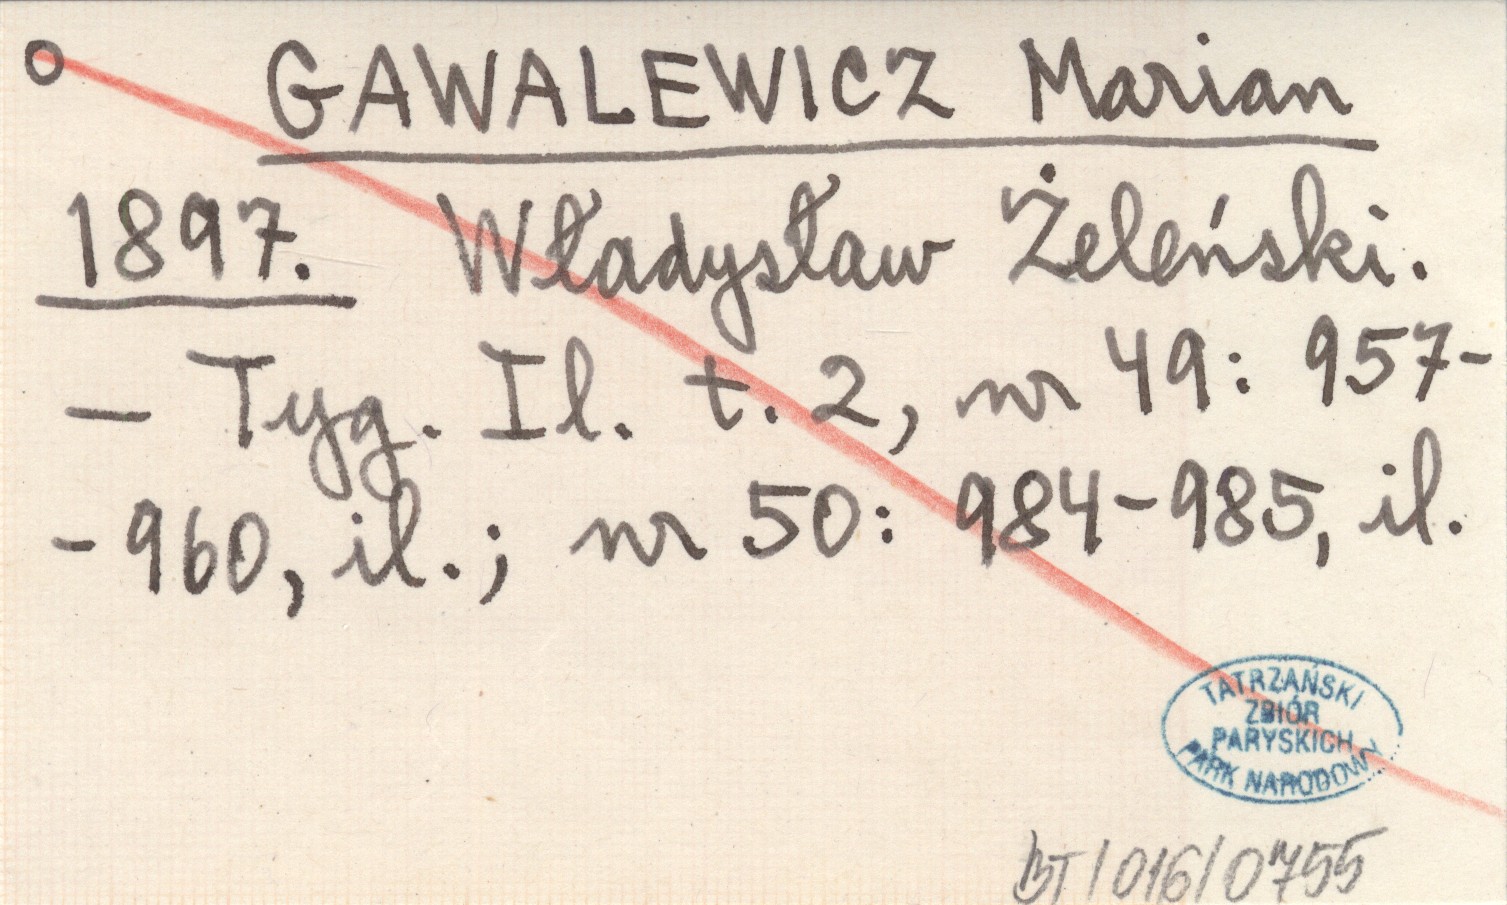 GAWALEWICZ Marian
1897. Władysław Żeleński.
— Tyg. Il. t. 2, nr 49: 957-
-960, il.; nr 50: 984-985, il.
TATRZAŃSKI
ZBIÓR
PARYSKICH
PARK NARODOWY
BT/016/0755